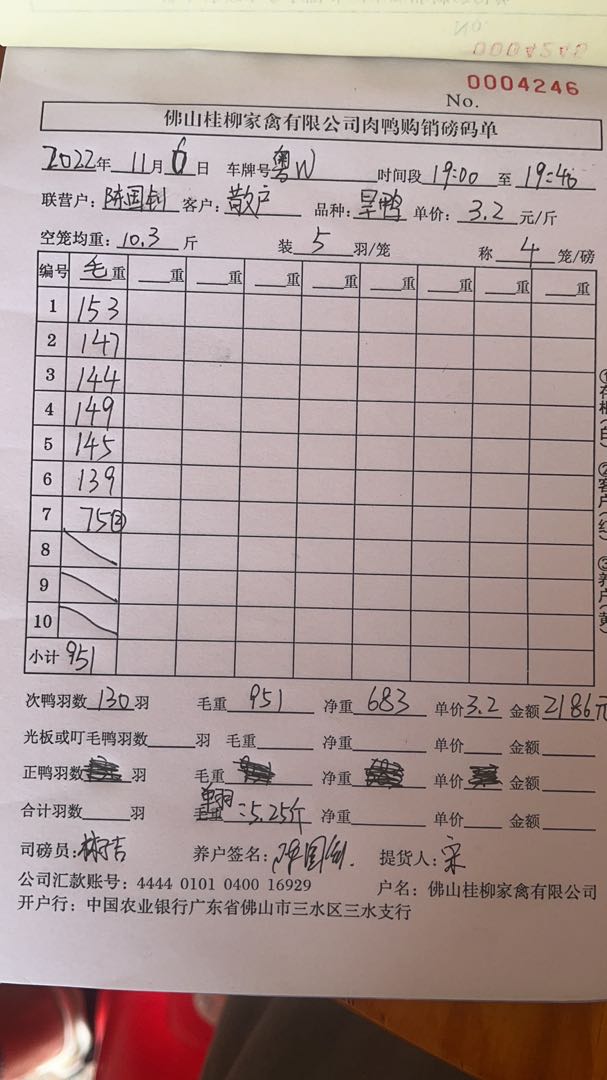 0004240
No.
0004246
No.
佛山桂柳家禽有限公司肉鸭购销磅码单
2022年 11月 6日 车牌号 粤W 时间段 19:00 至 19:46
联营户: 陈国钊 客户: 散户 品种: 旱鸭 单价: 3.2 元/斤
空笼均重: 10.3 斤 装 5 羽/笼 称 4 笼/磅
编号 毛重 重 重 重 重 重 重 重 重
1 153
2 147
3 144
4 149
5 145
6 139
7 75②
8
9
10
小计 951
次鸭羽数 130 羽 毛重 951 净重 683 单价 3.2 金额 2186元
光板或叮毛鸭羽数 羽 毛重 净重 单价 金额
正鸭羽数 羽 毛重 净重 单价 金额
合计羽数 羽 毛重 单羽=5.25斤 净重 单价 金额
司磅员: 养户签名: 陈国钊. 提货人: 宋
公司汇款账号: 4444 0101 0400 16929 户名: 佛山桂柳家禽有限公司
开户行: 中国农业银行广东省佛山市三水区三水支行
①存根(白) ②客户(红) ③养户(黄)